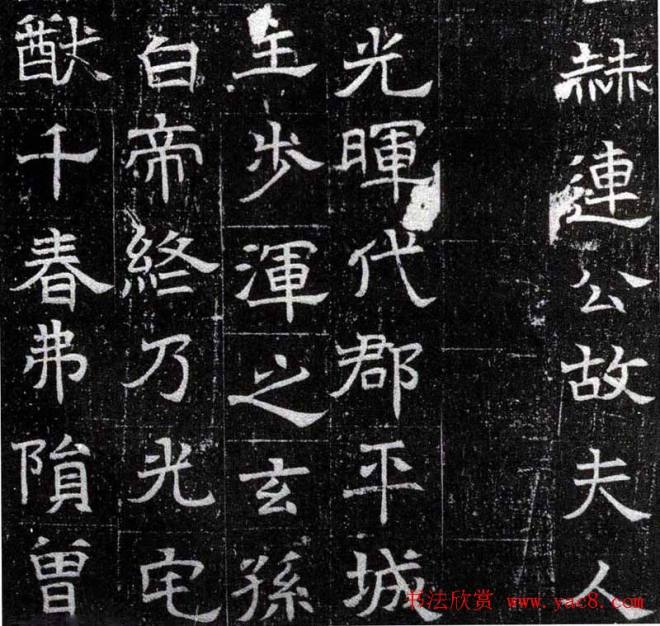 赫連公故夫人
光暉代郡平城
主步渾之玄孫
白帝終乃光宅
猷千春弗隕曾
书法欣赏 www.yac8.com